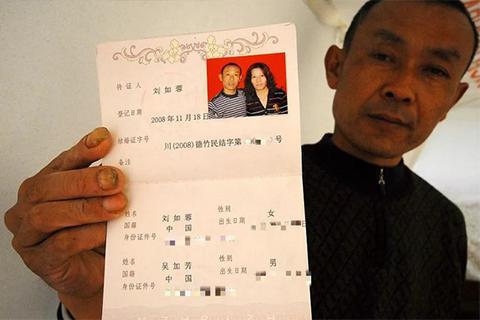 持证人 刘如蓉
登记日期 2008年11月18日
结婚证字号 川(2008)德竹民结字第 号
备注
姓名 刘如蓉 性别 女
国籍 中国 出生日期
身份证件号
姓名 吴加芳 性别 男
国籍 中国 出生日期
身份证件号